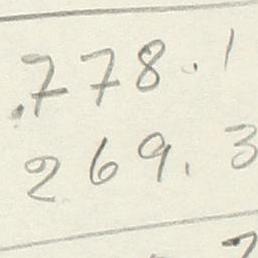 .778.1
269.3